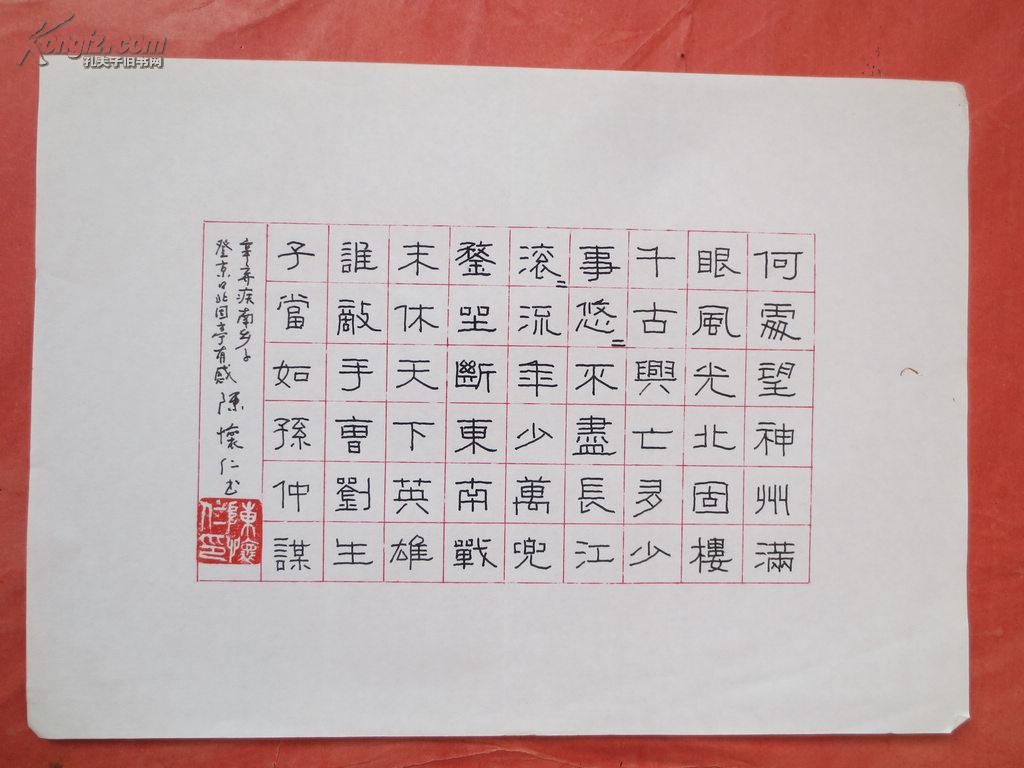 何處望神州滿
眼風光北固樓
千古興亡多少
事悠〻不盡長江
滾〻流年少萬兜
鍪坐斷東南戰
未休天下英雄
誰敵手曹劉生
子當如孫仲謀
辛弃疾南乡子
登京口北固亭有感 陳懷仁书
陳懷仁印
Kongfz.com
孔夫子旧书网